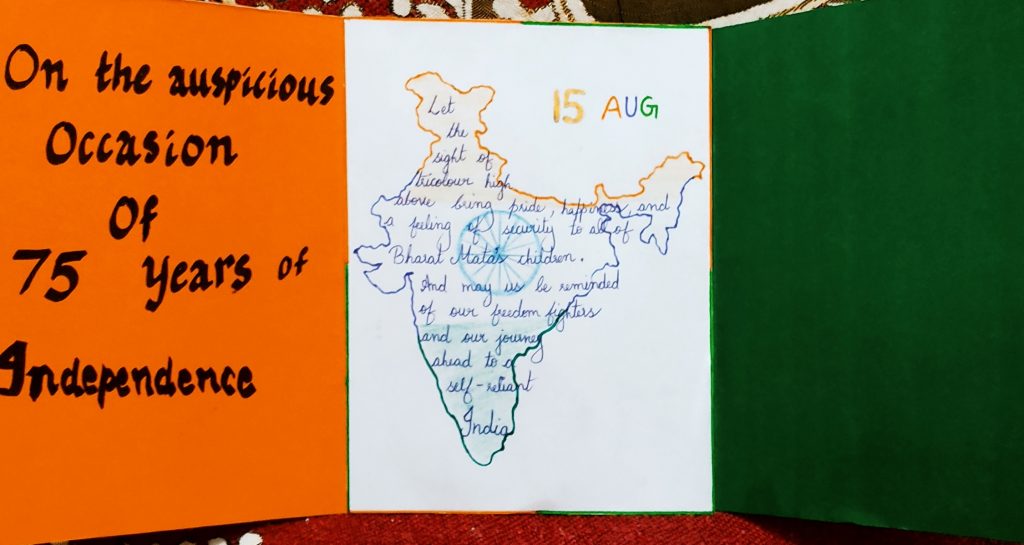 On the auspicious
Occasion
Of
75 years of
Independence
15 AUG
Let
the
sight of
tricolour high
above bring pride, happiness, and
a feeling of security to all of
Bharat Mata's children.
And may us be reminded
of our freedom fighters
and our journey
ahead to a
self-reliant
India